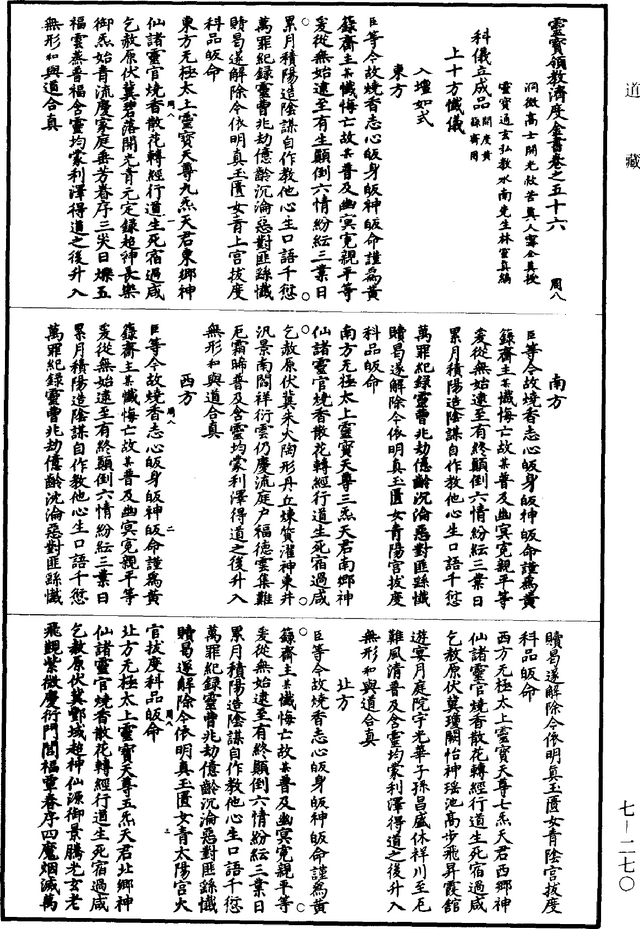 道藏
靈寶領教濟度金書卷之五十六 周八
洞微高士開光救苦真人甯全真授
靈寶通玄弘教水南先生林靈真編
科儀立成品 開度黃籙齋用
上十方懺儀
入壇如式
東方
臣等今故燒香志心皈身皈神皈命謹為黃
籙齋主某懺悔亡故某普及幽冥冤親平等
爰從無始遠至有生顛倒六情紛紜三業日
累月積陽造陰謀自作教他心生口語千愆
萬罪紀錄靈曹兆劫億齡沉淪惡對匪繇懺
贖曷遂解除今依明真玉匱女青上宮拔度
科品皈命
東方無極太上靈寶天尊九炁天君東鄉神
仙諸靈官燒香散花轉經行道生死宿過咸
乞赦原伏冀碧落開光青元定錄超神長樂
御炁始青流慶家庭垂芳眷序三災日爍五
福雲蒸普福含靈均蒙利澤得道之後升入
無形和與道合真
南方
臣等今故燒香志心皈身皈神皈命謹為黃
籙齋主某懺悔亡故某普及幽冥冤親平等
爰從無始遠至有終顛倒六情紛紜三業日
累月積陽造陰謀自作教他心生口語千愆
萬罪紀錄靈曹兆劫億齡沉淪惡對匪繇懺
贖曷遂解除今依明真玉匱女青陽宮拔度
科品皈命
南方無極太上靈寶天尊三炁天君南鄉神
仙諸靈官燒香散花轉經行道生死宿過咸
乞赦原伏冀朱火陶形丹丘煉質濯神東井
汎景南閻祥衍雲仍慶流庭戶福德雲集難
厄霜晞普及含靈均蒙利澤得道之後升入
無形和與道合真
西方
臣等今故燒香志心皈身皈神皈命謹為黃
籙齋主某懺悔亡故某普及幽冥冤親平等
爰從無始遠至有終顛倒六情紛紜三業日
累月積陽造陰謀自作教他心生口語千愆
萬罪紀錄靈曹兆劫億齡沈淪惡對匪繇懺
贖曷遂解除今依明真玉匱女青陰宮拔度
科品皈命
西方無極太上靈寶天尊七炁天君西鄉神
仙諸靈官燒香散花轉經行道生死宿過咸
乞赦原伏冀瓊闕怡神瑤池高步飛昇霞館
遊宴月庭院宇光華子孫昌盛休祥川至厄
難風清普及含靈均蒙利澤得道之後升入
無形和與道合真
北方
臣等今故燒香志心皈身皈神皈命謹為黃
籙齋主某懺悔亡故某普及幽冥冤親平等
爰從無始遠至有終顛倒六情紛紜三業日
累月積陽造陰謀自作教他心生口語千愆
萬罪紀錄靈曹兆劫億齡沉淪惡對匪繇懺
贖曷遂解除今依明真玉匱女青太陽宮火
官拔度科品皈命
北方無極太上靈寶天尊五炁天君北鄉神
仙諸靈官燒香散花轉經行道生死宿過咸
乞赦原伏冀酆城超神仙源御景騰光玄老
飛覲紫微慶衍門閭福覃眷序四魔烟滅萬
七－二七〇